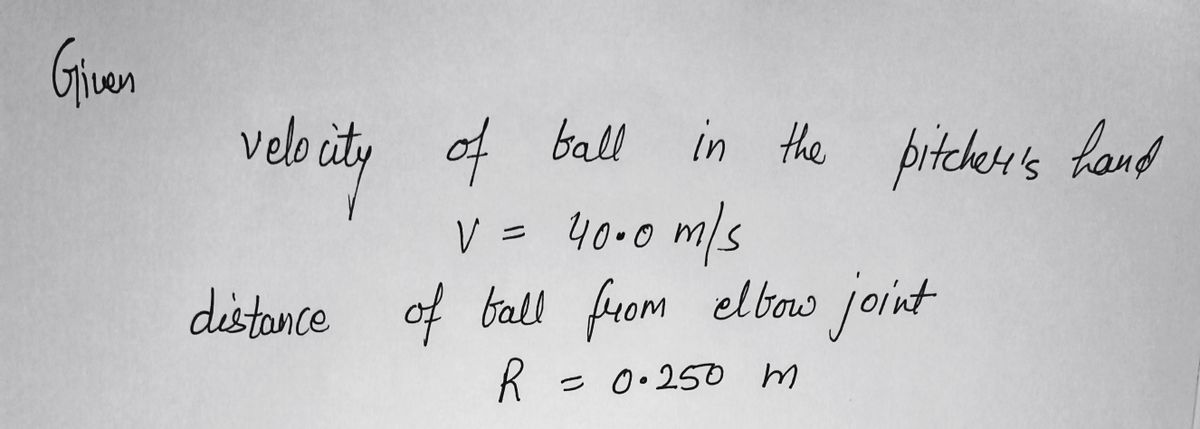 Given
velocity of ball in the pitcher's hand
V = 40.0 m/s
distance of ball from elbow joint
R = 0.250 m